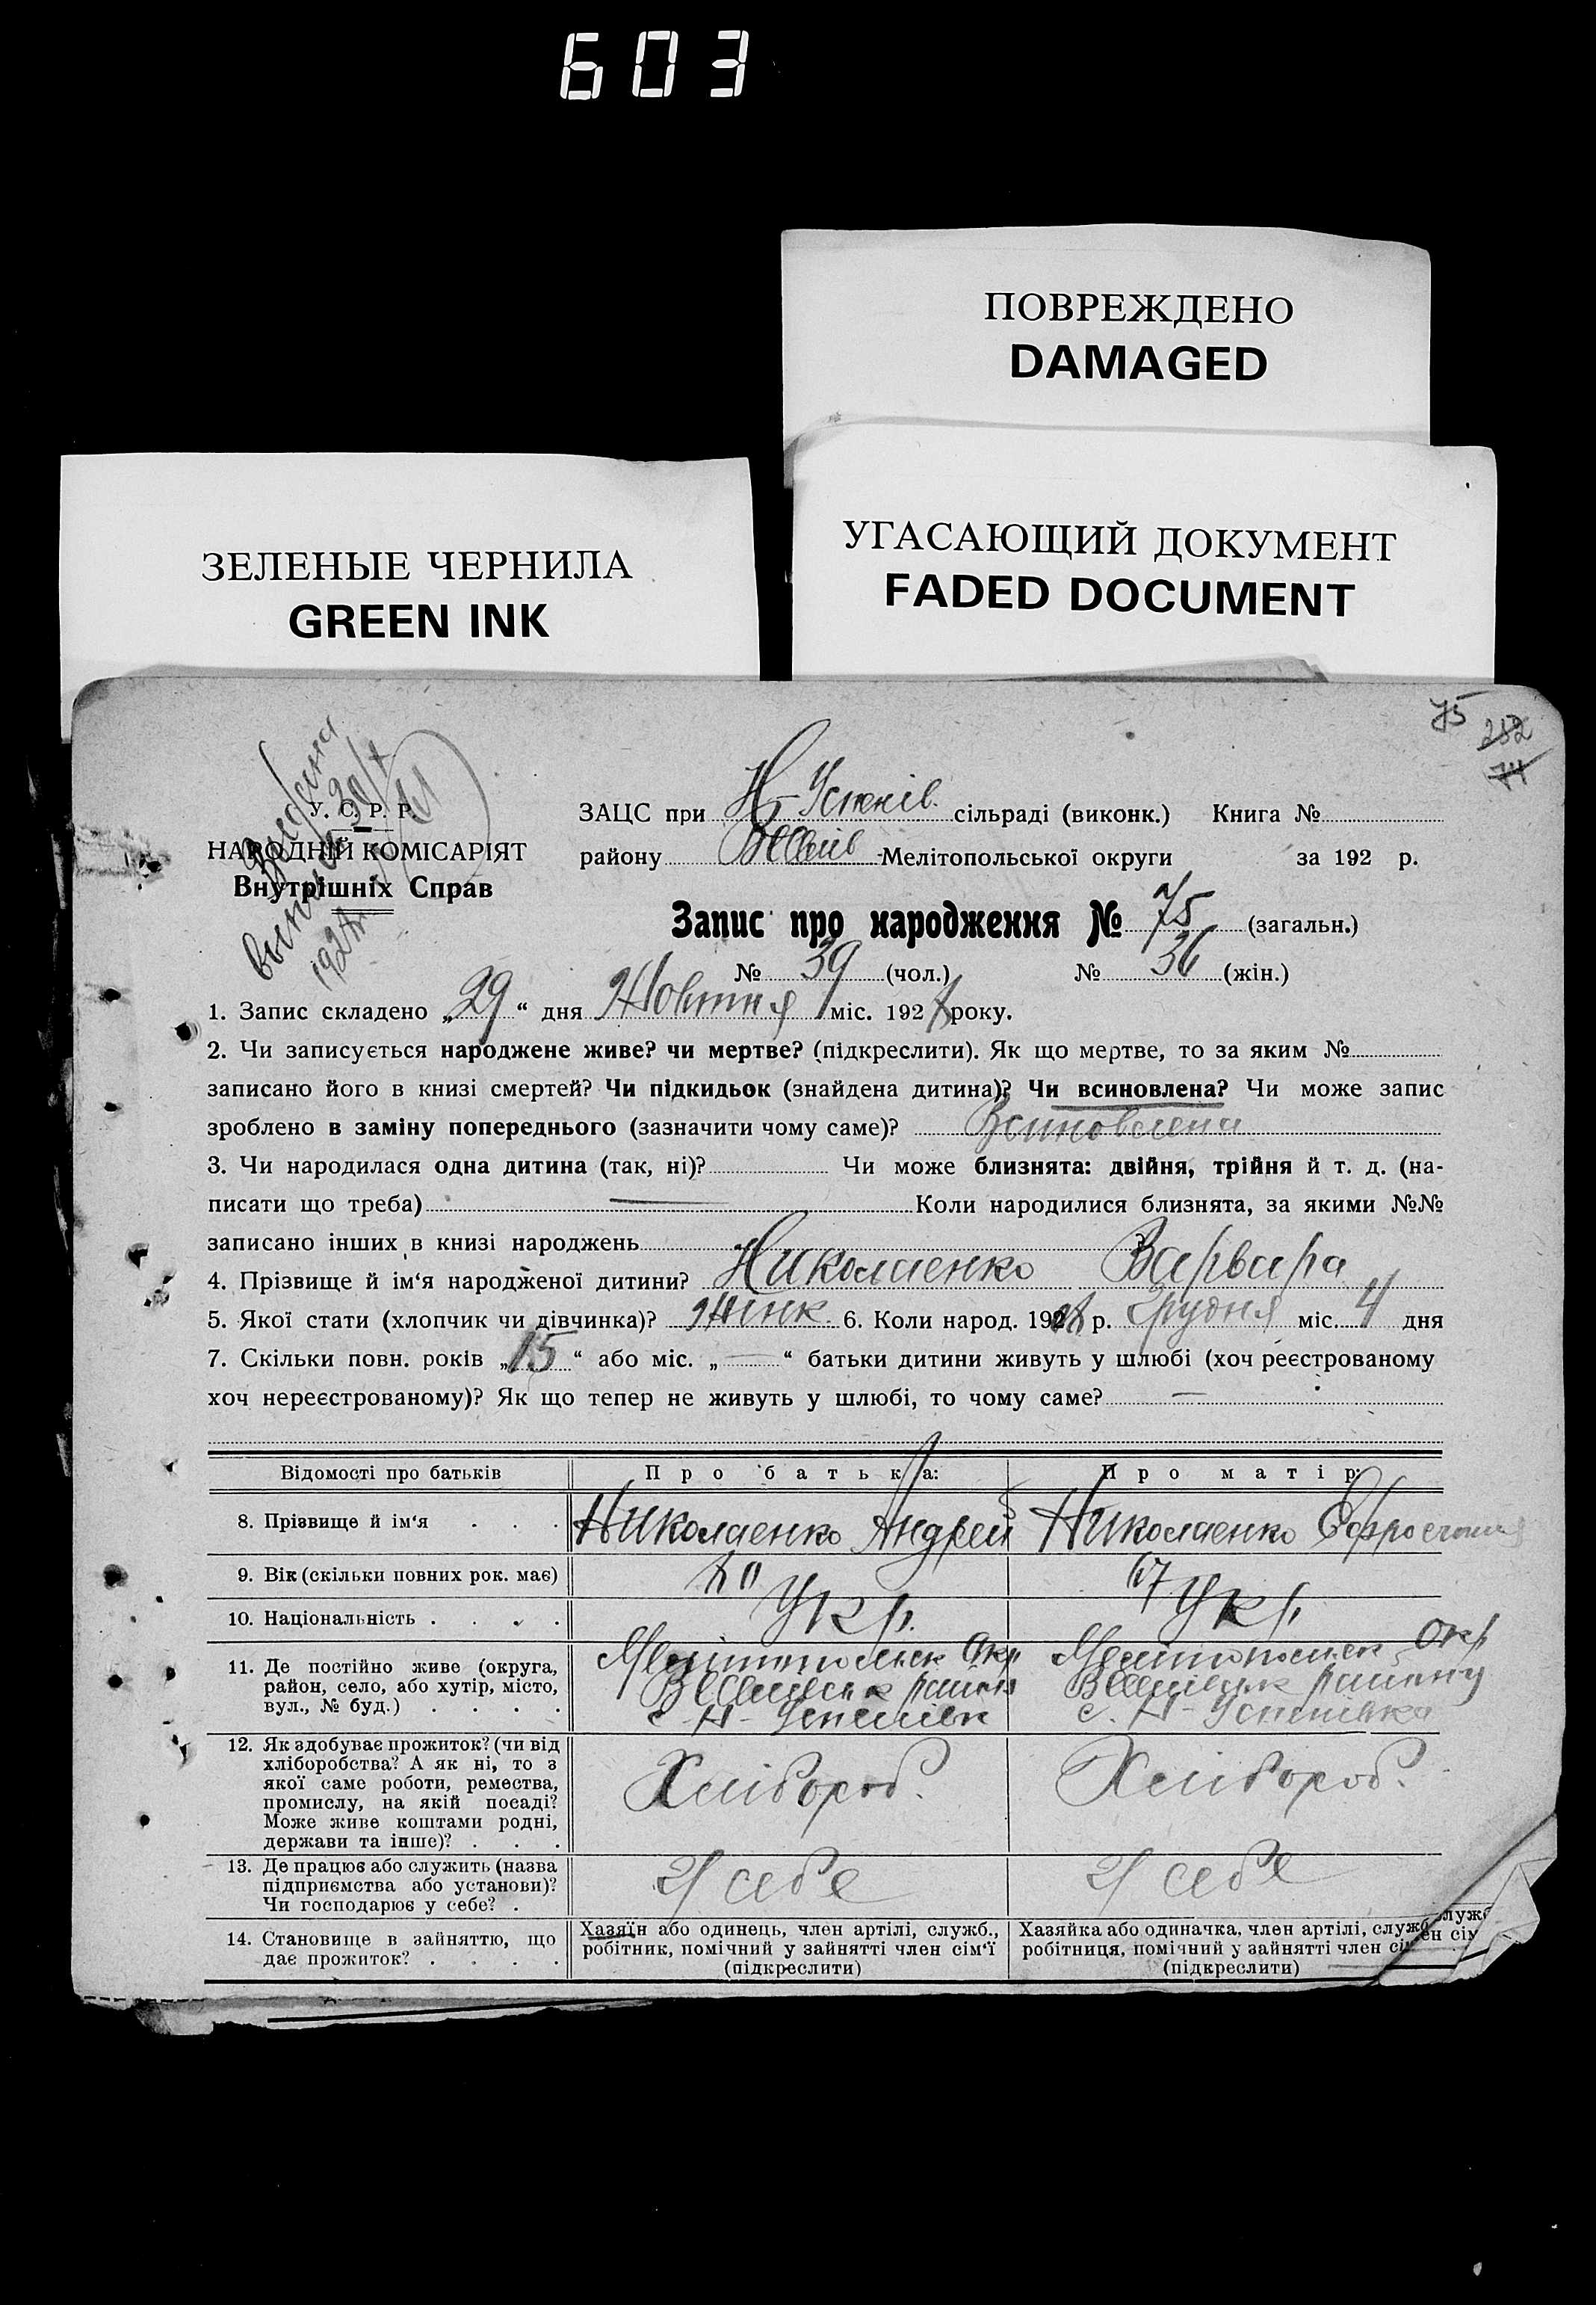 603
ПОВРЕЖДЕНО
DAMAGED
ЗЕЛЕНЫЕ ЧЕРНИЛА
GREEN INK
УГАСАЮЩИЙ ДОКУМЕНТ
FADED DOCUMENT
75
282
74
У. С. Р. Р.
НАРОДНІЙ КОМІСАРІЯТ
Внутрішніх Справ
ЗАЦС при Н-Успенів. сільраді (виконк.) Книга №
району -Мелітопольської округи за 192 р.
Запис про народження № 75 (загальн.)
№ 39 (чол.) № 36 (жін.)
1. Запис складено „29“ дня Жовтня міс. 192 року.
2. Чи записується народжене живе? чи мертве? (підкреслити). Як що мертве, то за яким №
записано його в книзі смертей? Чи підкидьок (знайдена дитина)? Чи всиновлена? Чи може запис
зроблено в заміну попереднього (зазначити чому саме)? Всиновлена
3. Чи народилася одна дитина (так, ні)? Чи може близнята: двійня, трійня й т. д. (на-
писати що треба) — Коли народилися близнята, за якими №№
записано інших в книзі народжень ?
4. Прізвище й ім‘я народженої дитини? Николаенко Варвара
5. Якої стати (хлопчик чи дівчинка)? Жінк. 6. Коли народ. 192 р. Грудня міс. 4 дня
7. Скільки повн. років „15“ або міс. „—“ батьки дитини живуть у шлюбі (хоч реєстрованому
хоч нереєстрованому)? Як що тепер не живуть у шлюбі, то чому саме? —
Відомості про батьків Про батька: Про матір:
8. Прізвище й ім‘я . . . Николаенко Андрей Николаенко
9. Вік (скільки повних рок. має) 67
10. Національність . . . . Укр. Укр.
11. Де постійно живе (округа,
район, село, або хутір, місто,
вул., № буд.) . . . .
Мелітопольск Окр
район
с. Н-Успенівк
Мелітопольск Окр
району
с. Н-Успенівка
12. Як здобуває прожиток? (чи від
хліборобства? А як ні, то з
якої саме роботи, ремества,
промислу, на якій посаді?
Може живе коштами родні,
держави та інше)? . . .
Хлібороб. Хлібороб.
13. Де працює або служить (назва
підприємства або установи)?
Чи господарює у себе? .
У себе У себе
14. Становище в зайняттю, що
дає прожиток? . . . .
Хазяїн або одинець, член артілі, служб.,
робітник, помічний у зайнятті член сім‘ї
(підкреслити)
Хазяйка або одиначка, член артілі, служб
робітниця, помічний у зайнятті член сі
(підкреслити)